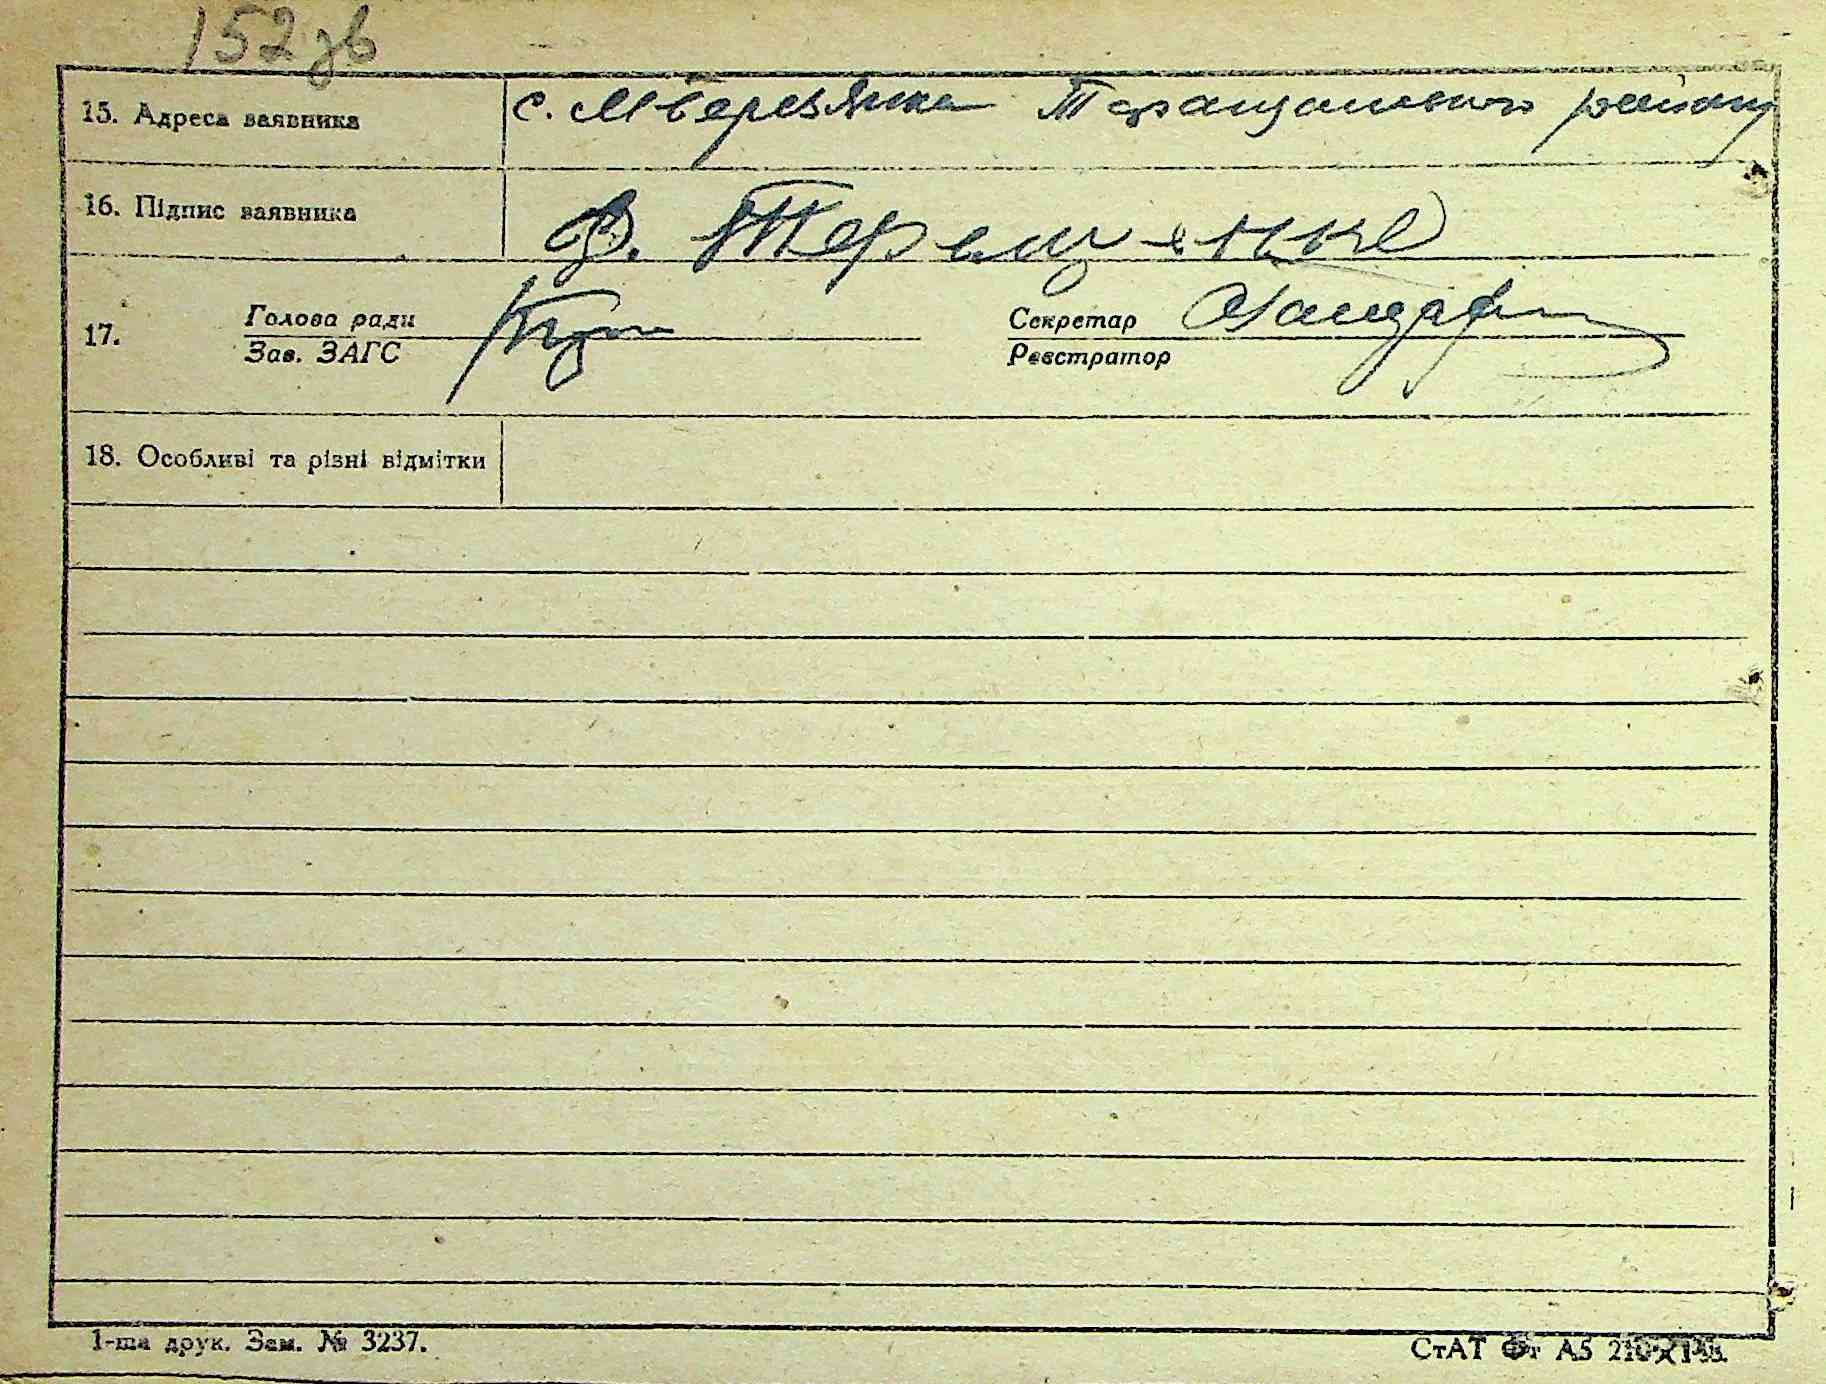 152зв
15. Адреса заявника с. М Березянка Таращанського району
16. Підпис заявника В. Терещенко
17. Голова ради
Зав. ЗАГС
Секретар
Реєстратор
18. Особливі та різні відмітки
1-ша друк. Зам. № 3237.
СтАТ Фт А5 210×